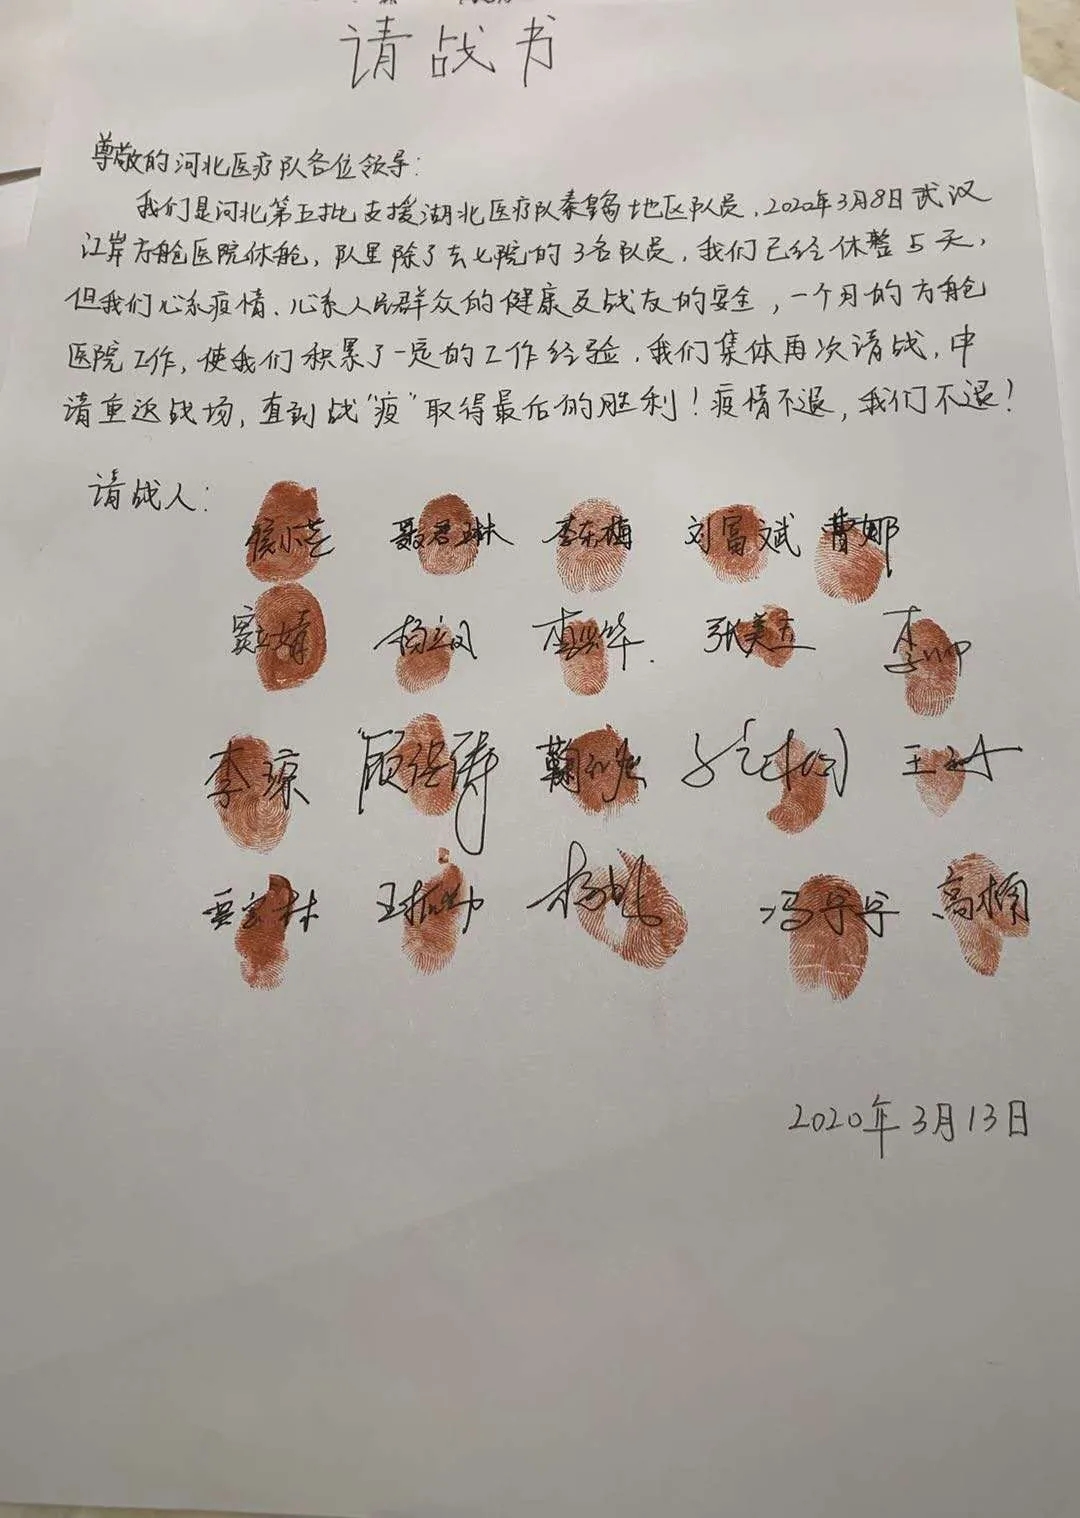 请战书
尊敬的河北医疗队各位领导：
我们是河北第五批支援湖北医疗队秦皇岛地区队员，2020年3月8日武汉
江岸方舱医院休舱，队里除了去七院的3名队员，我们已经休整5天，
但我们心系疫情、心系人民群众的健康及战友的安全，一个月的方舱
医院工作，使我们积累了一定的工作经验，我们集体再次请战，申
请重返战场，直到战“疫”取得最后的胜利！疫情不退，我们不退！
请战人：
侯小芸 聂君琳 李东梅 刘富斌 曹娜
窦立婧 杨立凤 张美杰 李帅
李琼 顾绍涛 王
王振 杨 冯宁宁 高楠
2020年3月13日